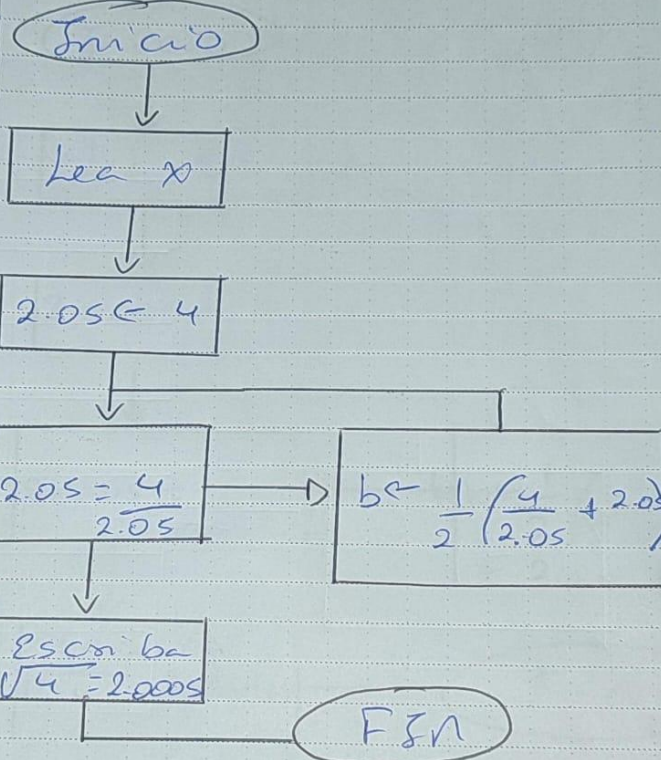 Inicio
Lea x
2.05 ← 4
2.05 = 4/2.05
b ← 1/2 (4/2.05 + 2.05)
Escriba
√4 = 2.0005
FIn